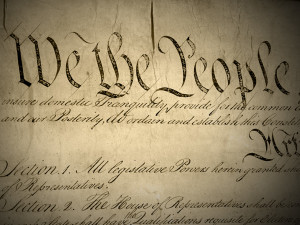 We the People
insure domestic Tranquility, provide for the common
and our Posterity, do ordain and establish this Const
Art
Section. 1. All legislative Powers herein granted
of Representatives.
Section. 2. The House of Representatives shall be
shall have the Qualifications requisite for Electors